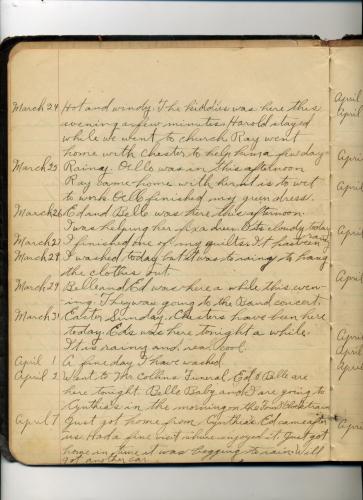 March 24 Hot and windy. The kiddies was here this
evening a few minutes. Harold stayed
while we went to church Ray went
home with Chester to help him a few days
March 25 Rainy. Ollo was in this afternoon
Ray came home with her it is to wet
to work. Ollo finished my green dress.
March 26 Ed and Belle was here this afternoon.
I was helping her fix a dress. It is cloudy today
March 27 I finished one of my quilts. It has been rainy
March 28 I washed today but it was to rainy to hang
the clothes out
March 29 Belle and Ed was here a while this even-
ing. They was going to the Band concert.
March 31 Easter Sunday. Chesters have been here
today. Eds was here tonight a while.
It is rainy and real cool.
April 1 A fine day I have washed
April 2 Went to Mr Collins Funeral. Ed & Belle are
here tonight Belle Baby and I are going to
Cynthia's in the morning on the o'clock train
April 7 Just got home from Cynthias. Ed came after
us. Had a fine visit enjoyed it. Just got
home in time it was begging to rain. Will
got another car
April
April
April
April
April
April
April
April
April
April